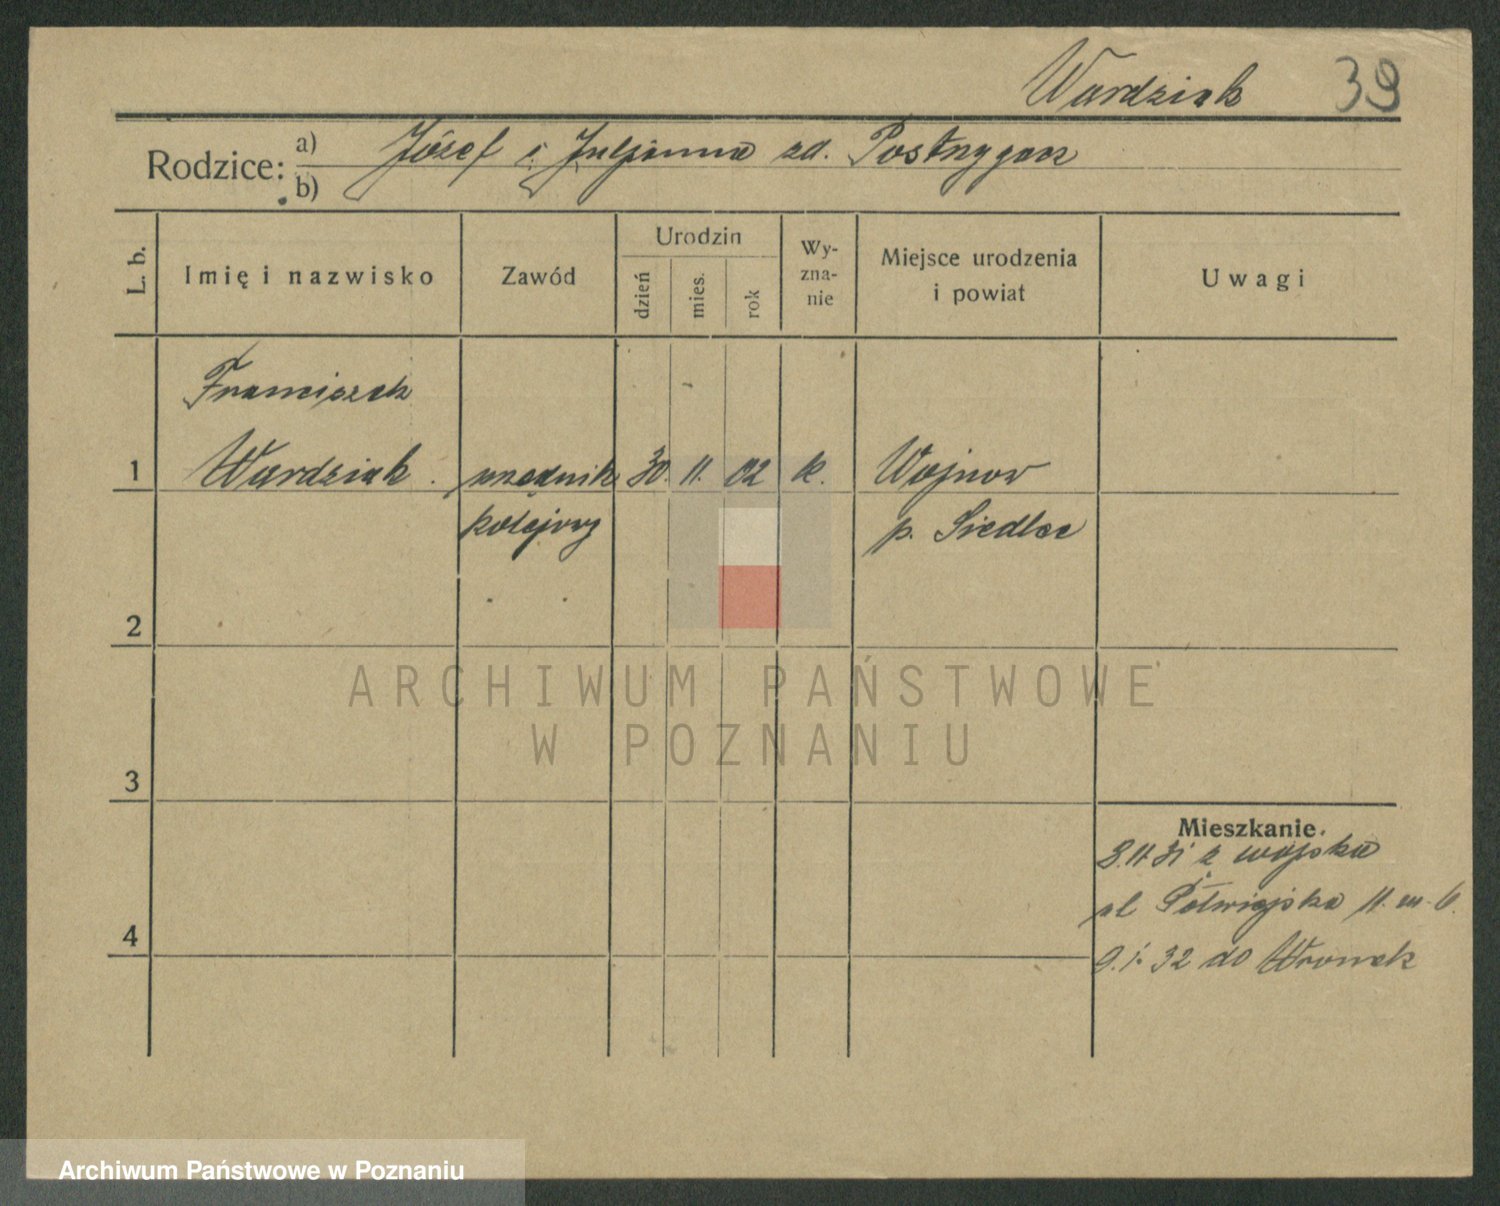 Wardziak 39
Rodzice: a) Józef i Juljanna zd. Postrzygacz
b)
L. b. Imię i nazwisko Zawód Urodzin dzień mies. rok Wy-zna-nie Miejsce urodzenia i powiat Uwagi
Franciszek
1 Wardziak urzędnik 30. 11. 02 k. Wojnow
kolejowy p. Siedlce
2
3
Mieszkanie.
3.11 31 z wojska
4 ul Półwiejska 11. m. 6.
9.1. 32 do Wronek
ARCHIWUM PAŃSTWOWE
W POZNANIU
Archiwum Państwowe w Poznaniu